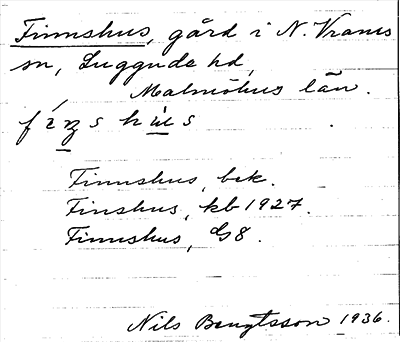 Finnshus, gård i N. Vrams
sn, Luggude hd,
Malmöhus län.
Finnshus, bek.
Finshus, kb 1927.
Finnshus, G8.
Nils Bengtsson 1936.